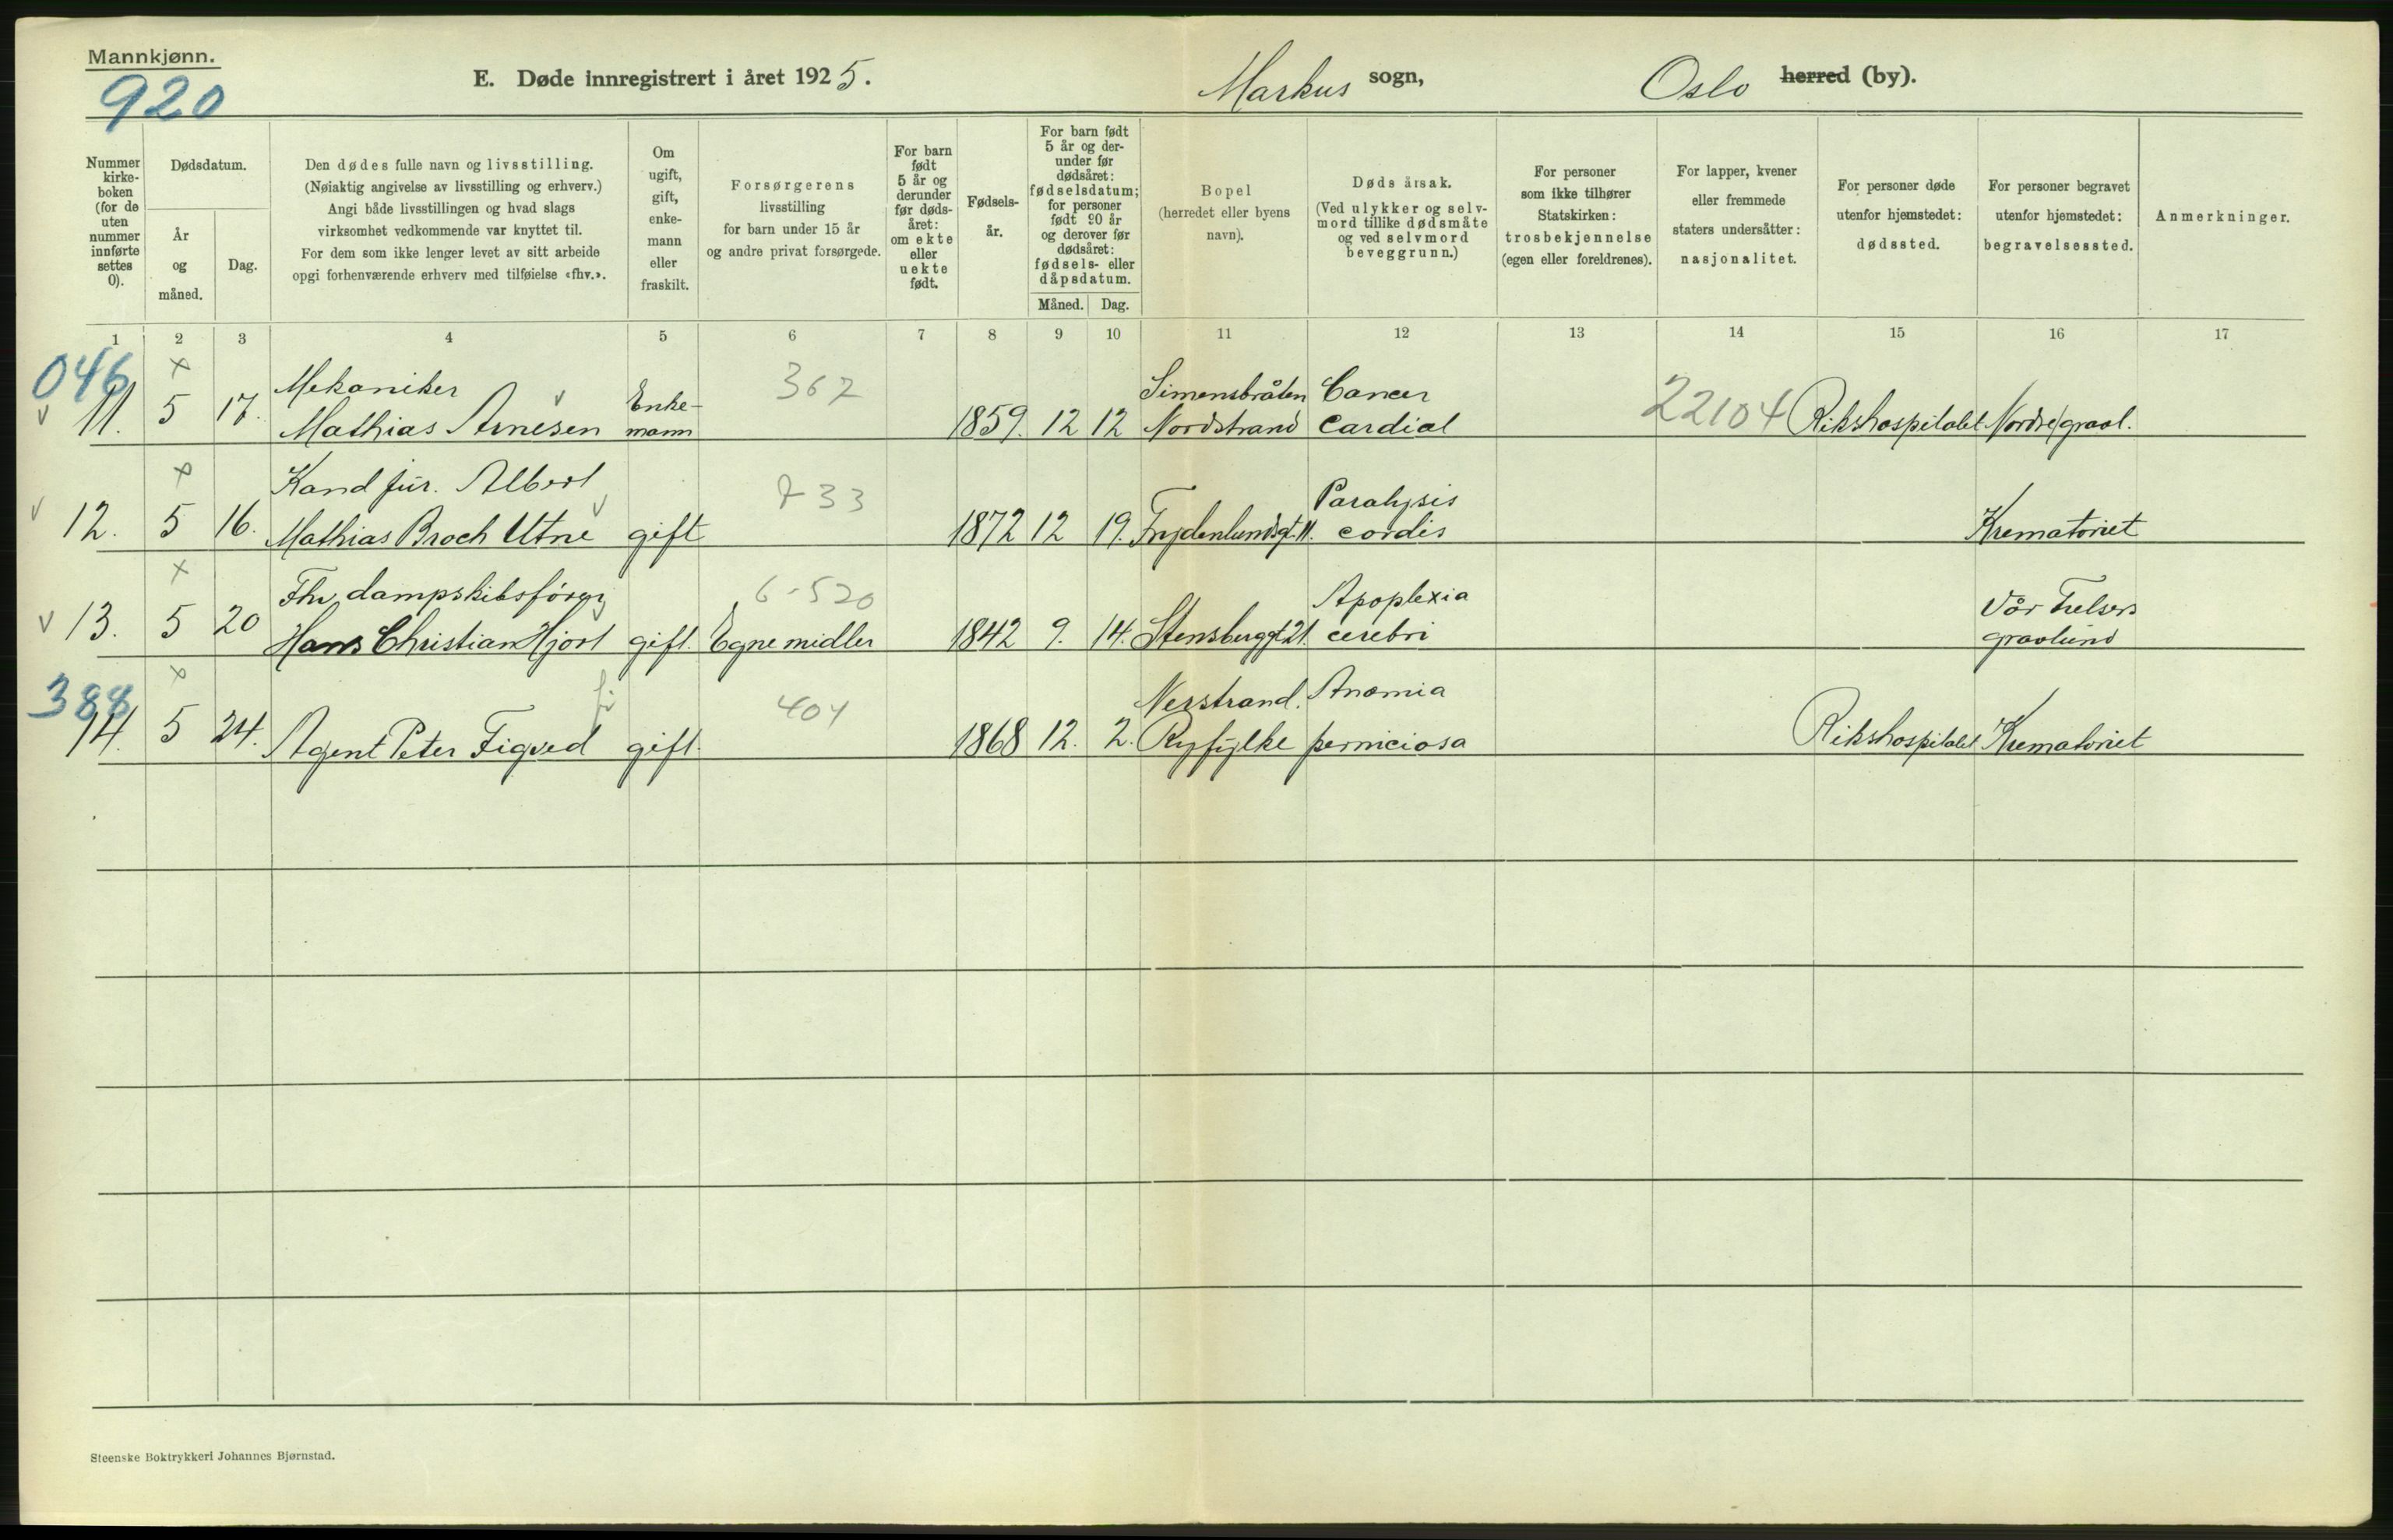 Mannkjønn.
920
E. Døde innregistrert i året 1925.
Markus sogn,
Oslo herred (by).
Nummer kirke-boken (for de uten nummer innførte settes 0).
Dødsdatum.
År og måned.
Dag.
Den dødes fulle navn og livsstilling.
(Nøiaktig angivelse av livsstilling og erhverv.)
Angi både livsstillingen og hvad slags
virksomhet vedkommende var knyttet til.
For dem som ikke lenger levet av sitt arbeide
opgi forhenværende erhverv med tilføielse «fhv.».
Om ugift, gift, enke-mann eller fraskilt.
Forsørgerens
livsstilling
for barn under 15 år
og andre privat forsørgede.
For barn født 5 år og derunder før døds-året: om ekte eller uekte født.
Fødsels-år.
For barn født 5 år og der-under før dødsåret: fødselsdatum; for personer født 90 år og derover før dødsåret: fødsels- eller dåpsdatum.
Måned. Dag.
Bopel
(herredet eller byens
navn).
Dødsårsak.
(Ved ulykker og selv-
mord tillike dødsmåte
og ved selvmord
beveggrunn.)
For personer
som ikke tilhører
Statskirken:
trosbekjennelse
(egen eller foreldrenes).
For lapper, kvener
eller fremmede
staters undersåtter:
nasjonalitet.
For personer døde
utenfor hjemstedet:
dødssted.
For personer begravet
utenfor hjemstedet:
begravelsessted.
Anmerkninger.
1 2 3 4 5 6 7 8 9 10 11 12 13 14 15 16 17
046 × Mekaniker 367 Simensbråten Cancer
v 11. 5 17. Mathias Arnesen Enke-mann 1859. 12 12 Nordstrand Cardial 22104 Rikshospitalet Nordre gravl.
× Kand jur. Albert 733 Paralysis
v 12. 5 16. Mathias Broch Utne gift 1872 12 19. Frydenlundsgt. 11. cordis Krematoriet
× Fhv. dampskibsfører 6-520 Apoplexia Vår Frelsers
v 13. 5 20 Hans Christian Hjort gift. Egne midler 1842 9. 14. Stensberggt 21. cerebri gravlund
388 × 401 Nerstrand. Anæmia
14. 5 24. Agent Peter Figved gift. 1868 12. 2. Ryfylke perniciosa Rikshospitalet Krematoriet
Steenske Boktrykkeri Johannes Bjørnstad.